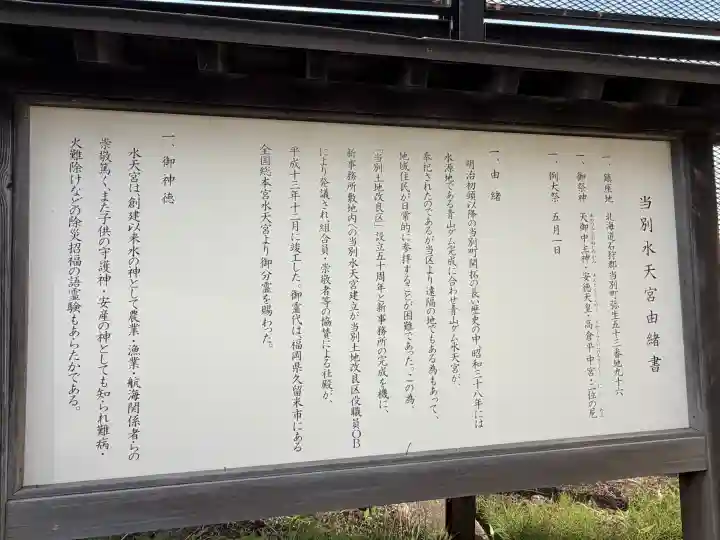 当別水天宮由緒書
一、鎮座地　北海道石狩郡当別町弥生五十二番地九十六
一、御祭神　天御中主神・安徳天皇・高倉平中宮・二位の尼
一、例大祭　五月一日
一、由緒
明治初頭以降の当別町開拓の長い歴史の中、昭和三十八年には
水源地である青山ダム完成に合わせ青山ダム水天宮が、
奉祀されたのであるが当区より遠隔の地でもある為もあって、
地域住民が日常的に参拝することが困難であった。この為、
「当別土地改良区」設立五十周年と新事務所の完成を機に、
新事務所敷地内への当別水天宮建立が当別土地改良区役職員OB
により発議され組合員・崇敬者等の協賛による社殿が、
平成十三年十二月に竣工した。御霊代は、福岡県久留米市にある
全国総本宮水天宮より御分霊を賜わった。
一、御神徳
水天宮は創建以来水の神として農業・漁業・航海関係者らの
崇敬篤く、また子供の守護神・安産の神としても知られ難病・
火難除けなどの除災招福の語霊験もあらたかである。